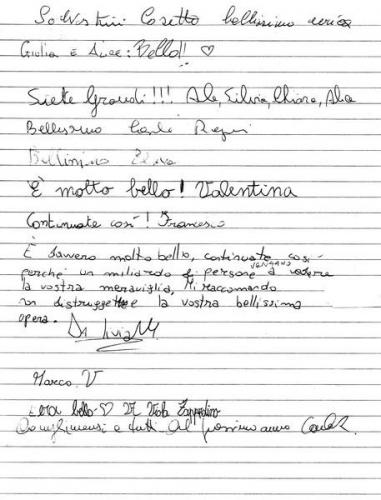 Bellissimo
Giulia e Alice: Bello!! ♡
Siete Grandi!!! Ale, Silvia, Chiara, Ale
Bellissimo Carlo
Bellissimo Elena
È molto bello! Valentina
Continuate così! Francesco
È davvero molto bello, continuate così
perché un miliardo di persone vengano a vedere
la vostra meraviglia, Mi raccomando
non distruggete la vostra bellissima
opera.
Marco V
era bello ♡ Viola
Complimenti a tutti al prossimo anno